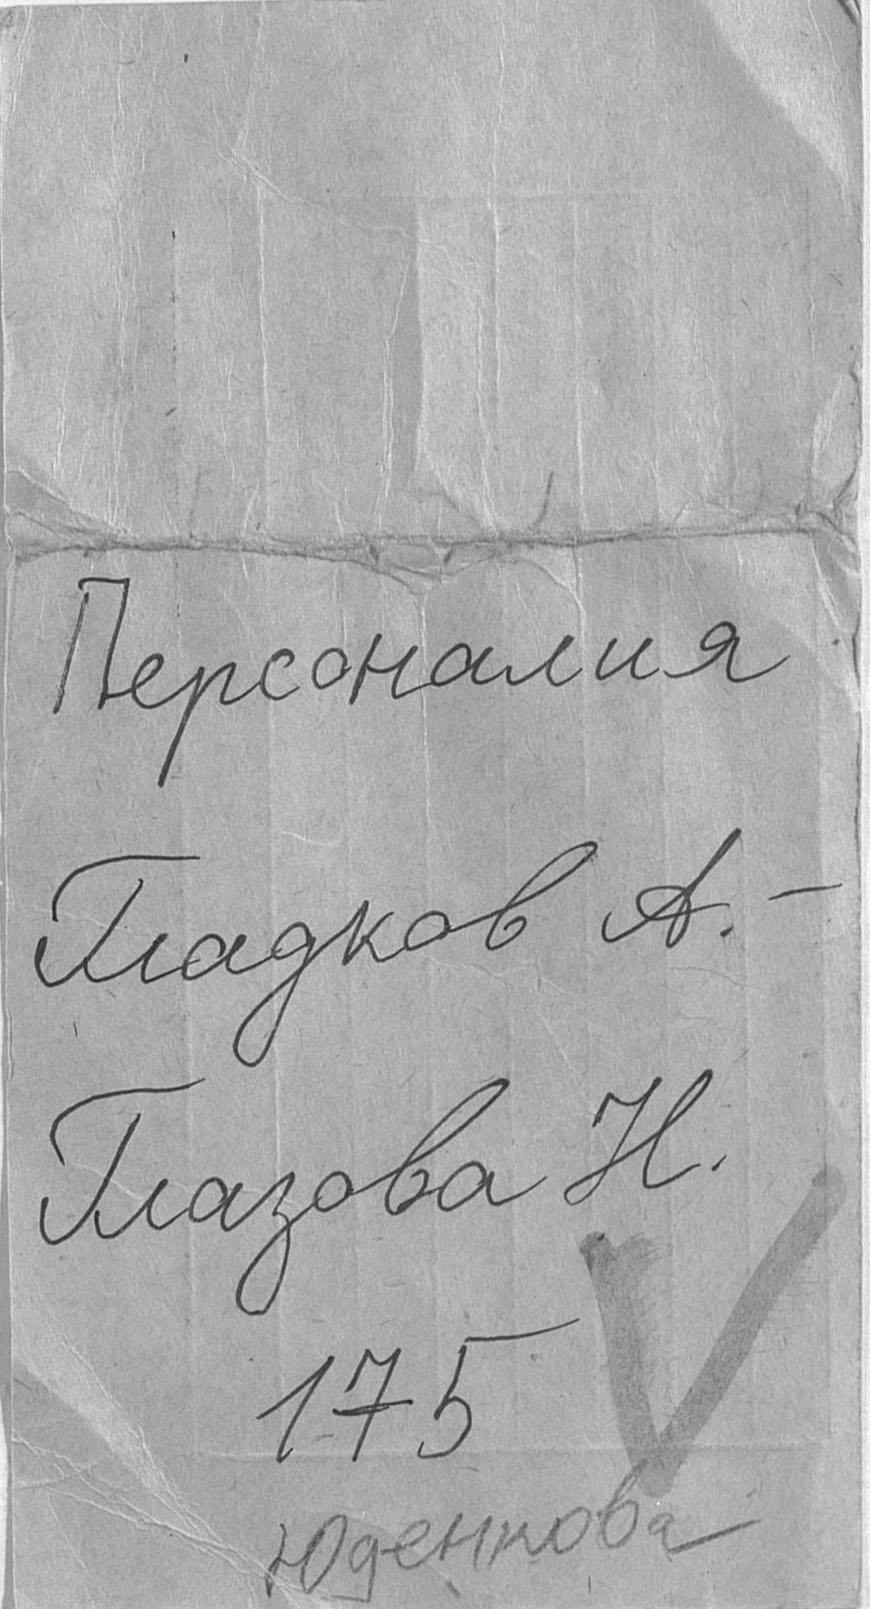 Персоналия
Гладков А. –
Глазова Н.
175
Юденкова